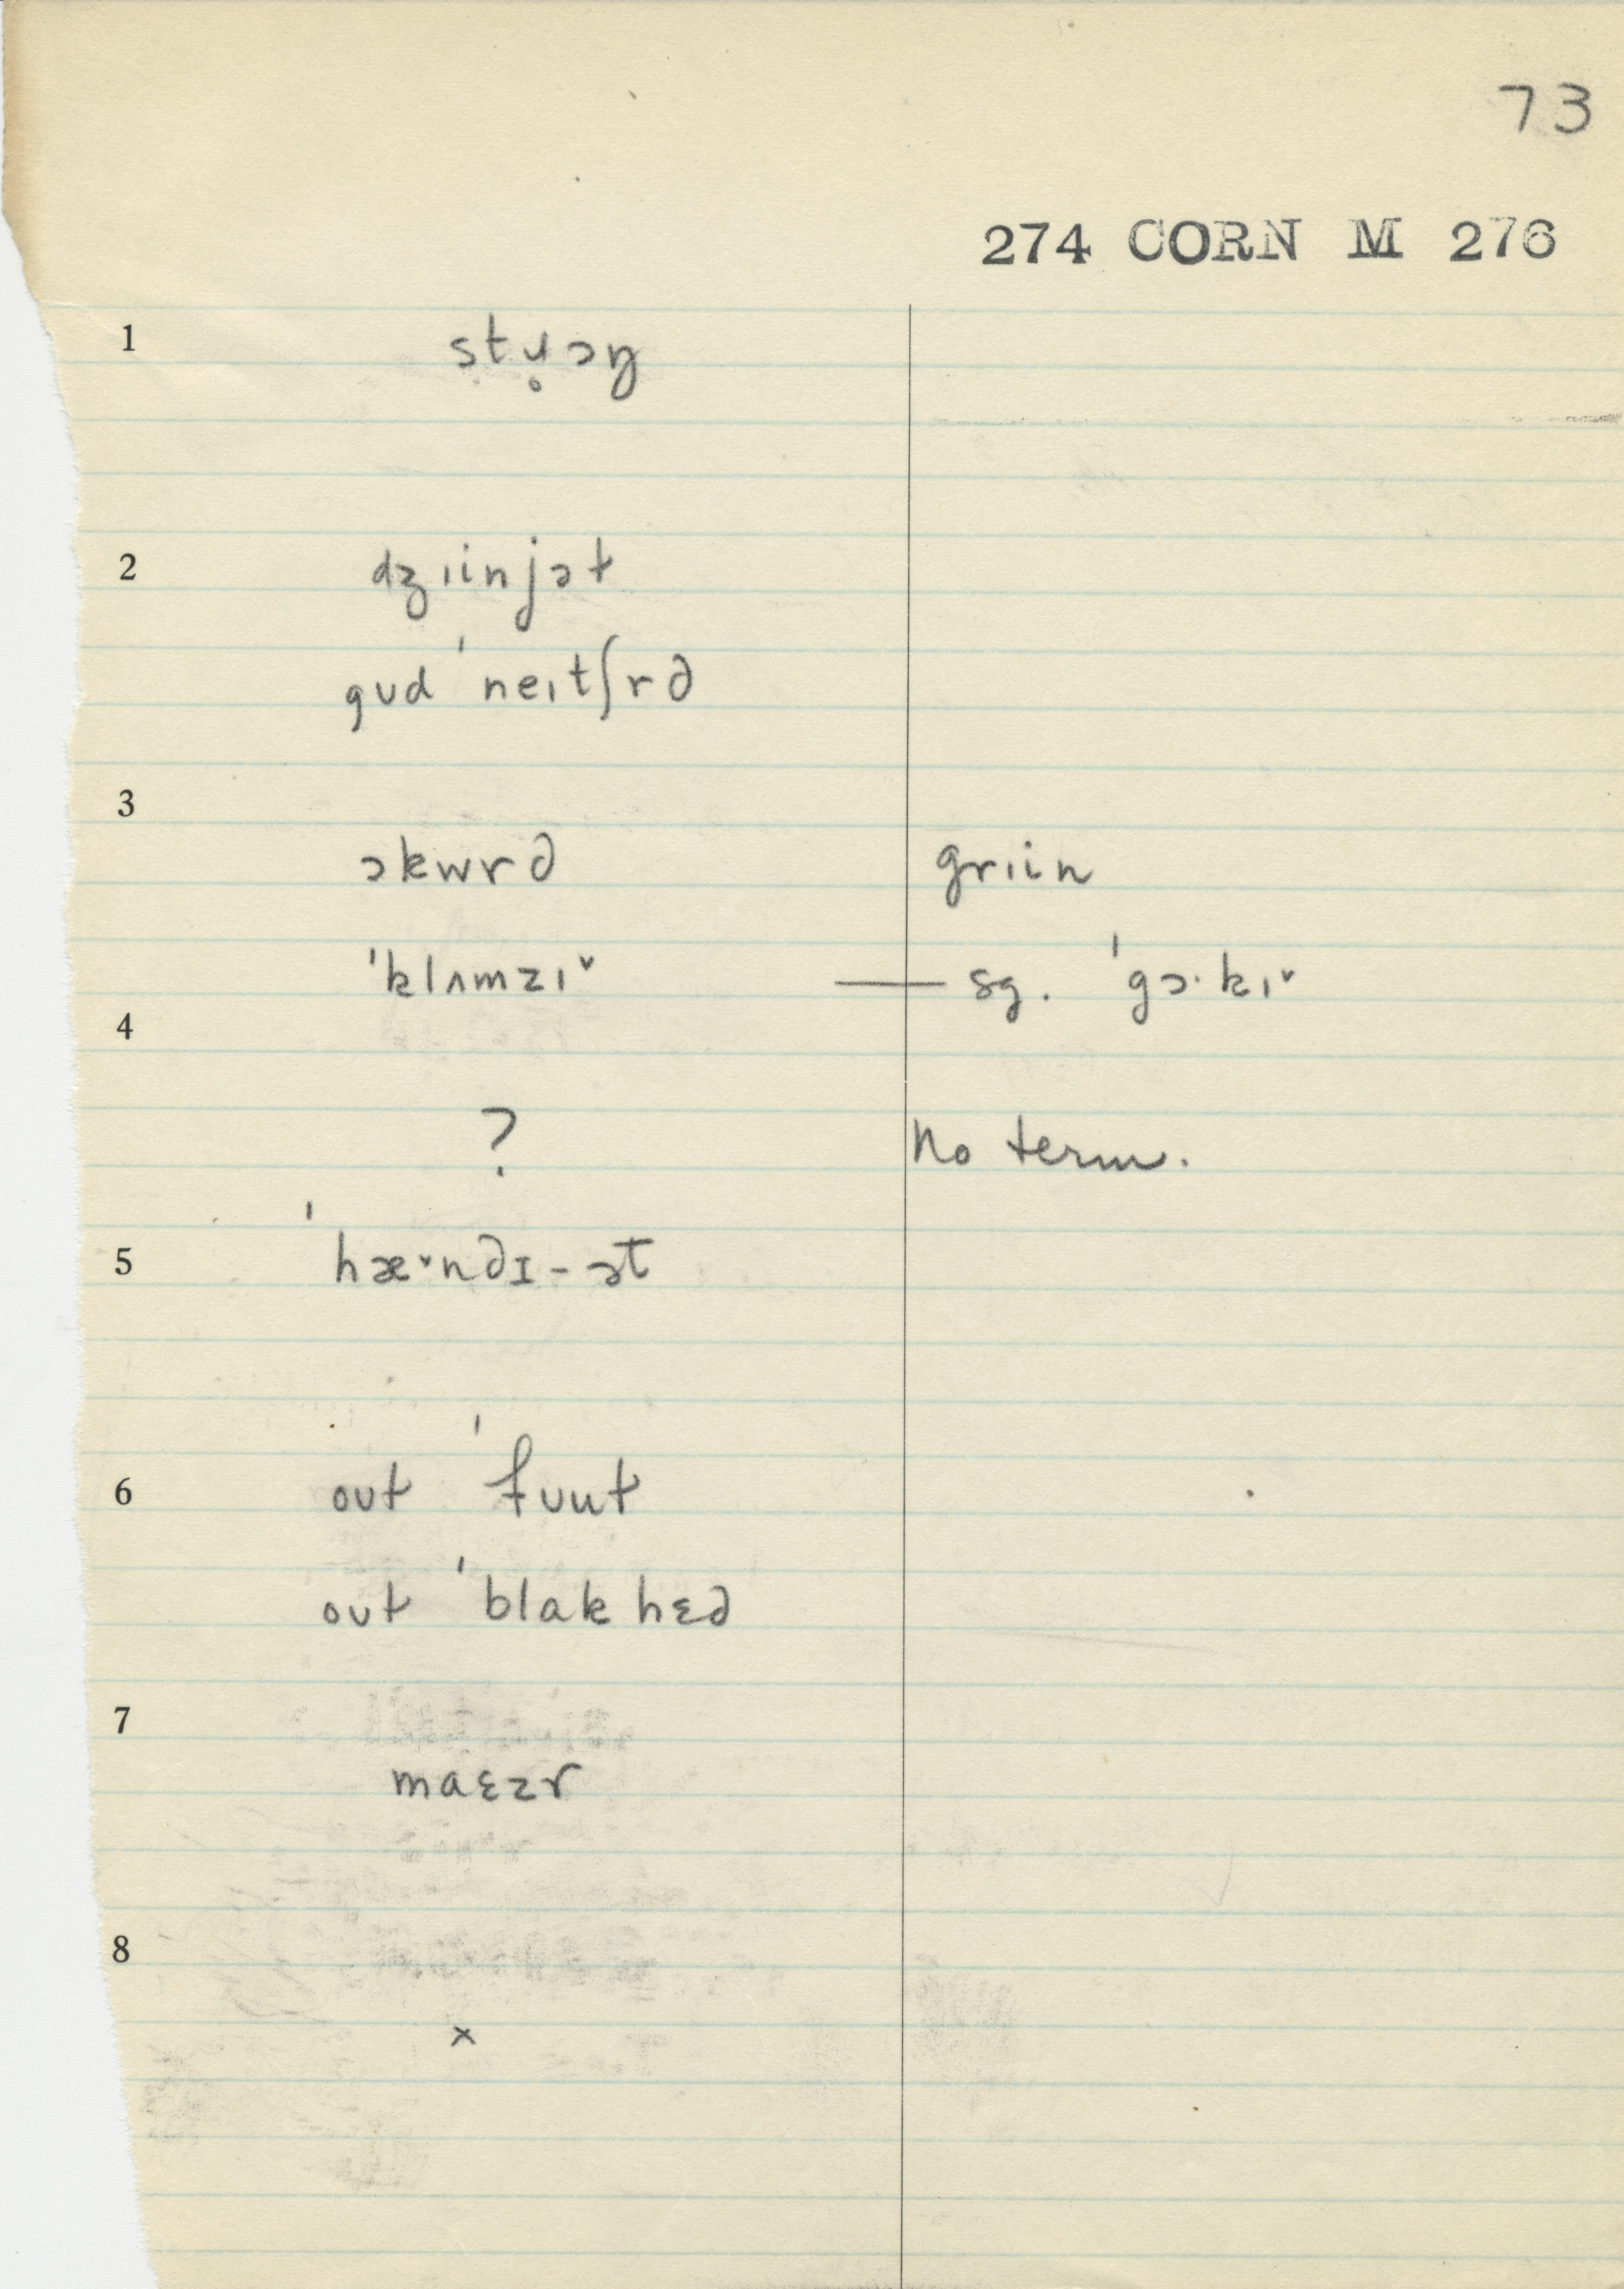 73
274 CORN M 276
1 stɹ̥ɔŋ
2 dʒɩinjət
gʊd ˈneɩtʃrd
3 ɔkwrd griin
ˈklʌmzɩ˅ — sg. ˈgɔ·kɩ˅
4
? No term.
5 ˈhæ˅ndɪ-ɔt
6 oʊt ˈfʊut
oʊt ˈblakhɛd
7
maɛzr
8
x